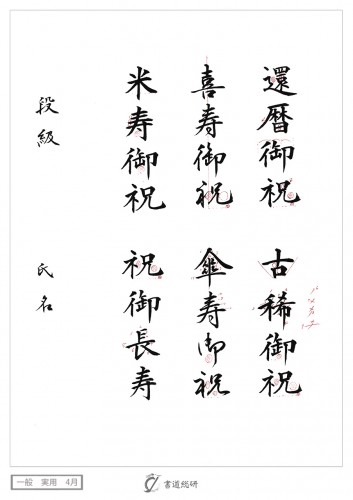 還暦御祝
古稀御祝
喜寿御祝
傘寿御祝
米寿御祝
祝御長寿
段級
氏名
一般 実用 4月
書道総研